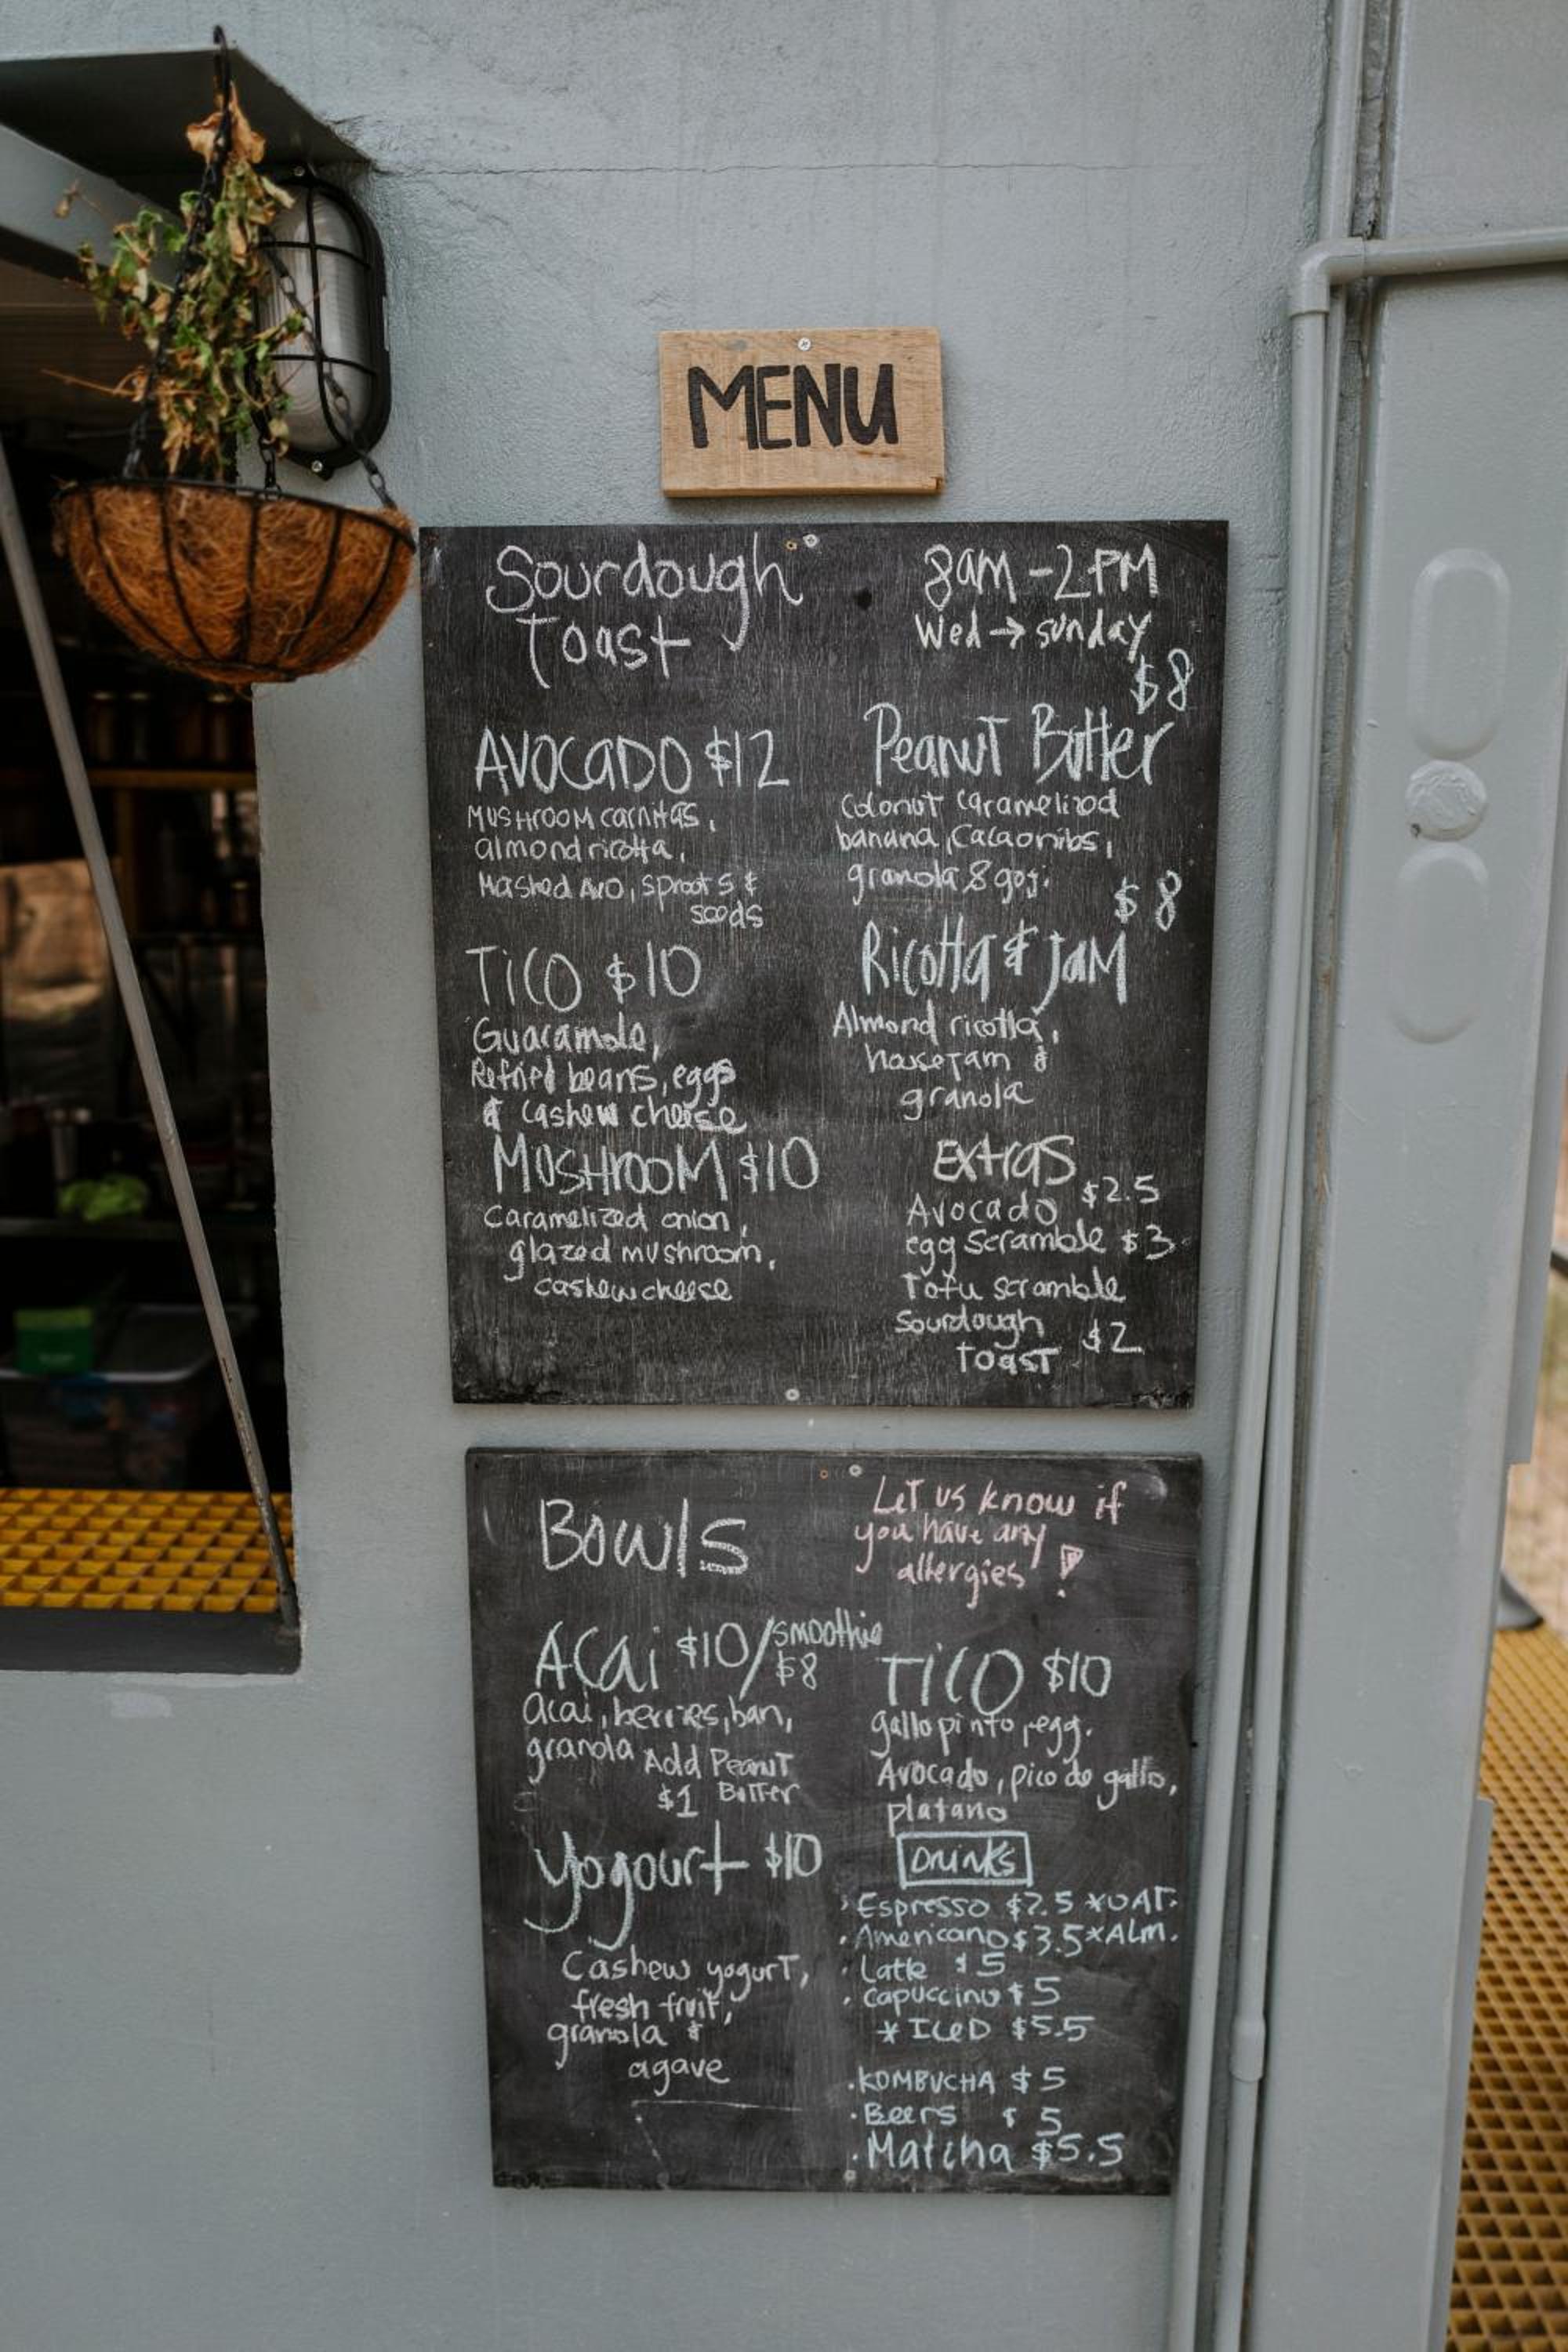 MENU
Sourdough
Toast
8am - 2 PM
Wed → sunday
AVOCADO $12
MUSHROOM carnitas,
almond ricotta,
Mashed AVO, sprouts &
seeds
TICO $10
Guacamole,
Refried beans, eggs
& cashew cheese
MUSHROOM $10
caramelized onion,
glazed mushroom,
cashew cheese
$8
Peanut Butter
Coconut caramelized
banana, Cacaonibs,
granola & goji
$8
Ricotta & JaM
Almond ricotta,
house jam &
granola
Extras
Avocado $2.5
egg scramble $3
Tofu scramble
Sourdough
toast $2
Bowls
Let us know if
you have any
allergies!
Acai $10/smoothie
$8
acai, berries, ban,
granola Add Peanut
$1 Butter
Yogourt $10
Cashew yogurt,
fresh fruit,
granola &
agave
TICO $10
gallo pinto, egg.
Avocado, pico de gallo,
platano
Drinks
· Espresso $2.5 *OAT.
· Americano $3.5 *ALM.
· Latte $5
· Capuccino $5
* ICeD $5.5
· KOMBUCHA $5
· Beers $5
· Matcha $5.5